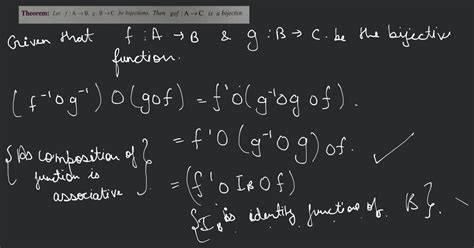 Theorem: Let f : A → B, g : B → C be bijections. Then gof : A → C is a bijection.
Given that f : A → B & g : B → C. be the bijective
function.
(f⁻¹og⁻¹) O (gof) = f'O(g⁻¹og of).
= f'O (g⁻¹O g) of.
{As composition of
function is
associative}
= (f'o I_B Of)
{I_B is identity function of B}.